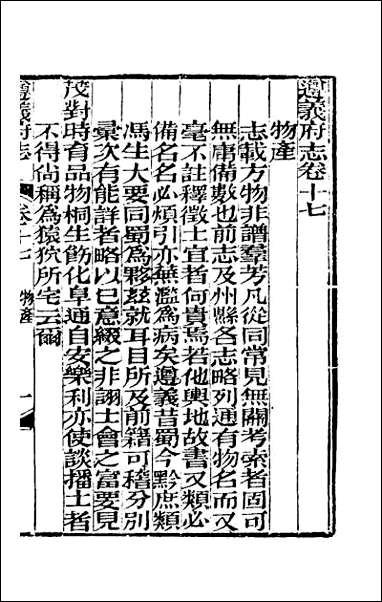 遵義府志卷十七
物產
志載方物非譜羣芳凡從同常見無關考索者固可
無庸備數也前志及州縣各志略列通有物名而又
毫不註釋徵土宜者何貴焉若他輿地故書又類必
備名名必煩引亦蕪濫爲病矣遵義昔蜀今黔庶類
馮生大要同蜀爲夥玆就耳目所及前籍可稽分別
彙次有能詳者略以己意綴之非詡土會之富要見
茂對時育品物桐生飭化阜通自安樂利亦使談播土者
不得尙稱爲猿狖所宅云爾
遵義府志
卷十七 物產
一